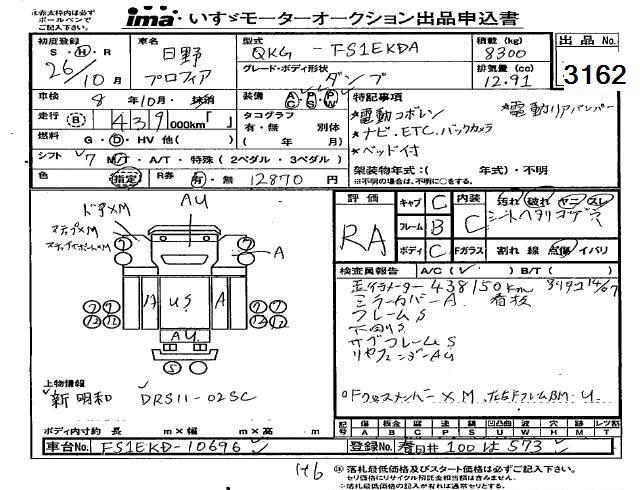 ㊟赤太枠内は必ず
ボールペンで
ご記入下さい。
ima いすゞモーターオークション出品申込書
初度登録
S・H・R
26年10月
車名
日野
プロフィア
型式
QKG - FS1EKDA
グレード・ボディ形状
ダンプ
積載(kg)
8300
排気量(cc)
12.91
出品No.
3162
車検 8年10月・抹消
装備 A C P S P W
特記事項
*電動コボレン *電動リアバンパー
*ナビ・ETC.バックカメラ
*ベッド付
走行 B 439000km「 」
タコグラフ
有・無 別体
( 年 月)
燃料 G・D・HV 他( )
シフト 7 M/T・A/T・特殊(2ペダル・3ペダル)
架装物年式:( 年式)・不明
※不明の場合は、不明に○をする。
色 指定 R券 有・無 12870円
評価 RA
キャブ C
フレーム B
ボディ C
内装 C
汚れ 破れ ヤニ スレ
Fガラス 割れ 線 点傷 イバリ
ドアXM
ステップXM
AU
A
US
A
AU
S
検査員報告 A/C(✓) B/T( )
438150km
ミラーカバーA 看板
フレームS
下回りS
サブフレームS
リヤフェンダーAU
上物情報
新明和 DRS11-02SC
ボディ内寸 約 長 m×幅 m×高 m
記号 傷 A 板金 B 腐 C 塗 P 錆 S 凹凸曲 U 波 W 穴 H 欠 M レンズ割 T
車台No. FS1EKD-10696
登録No. 春日井 100 は 573
H6
㊟落札最低価格及びスタート価格は必ずご記入下さい。
セリ価格にリサイクル預託金相当額は含みません。
※落札最低価格の記入が有れば通常セリとする。